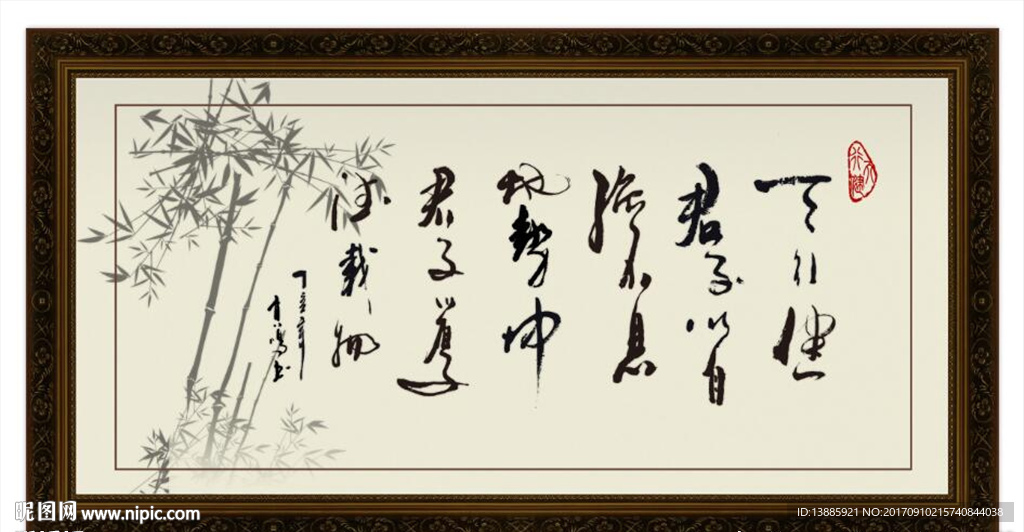 天行健
君子以自
强不息
地势坤
君子以厚
德载物
昵图网 www.nipic.com
ID:13885921 NO:20170910215740844038